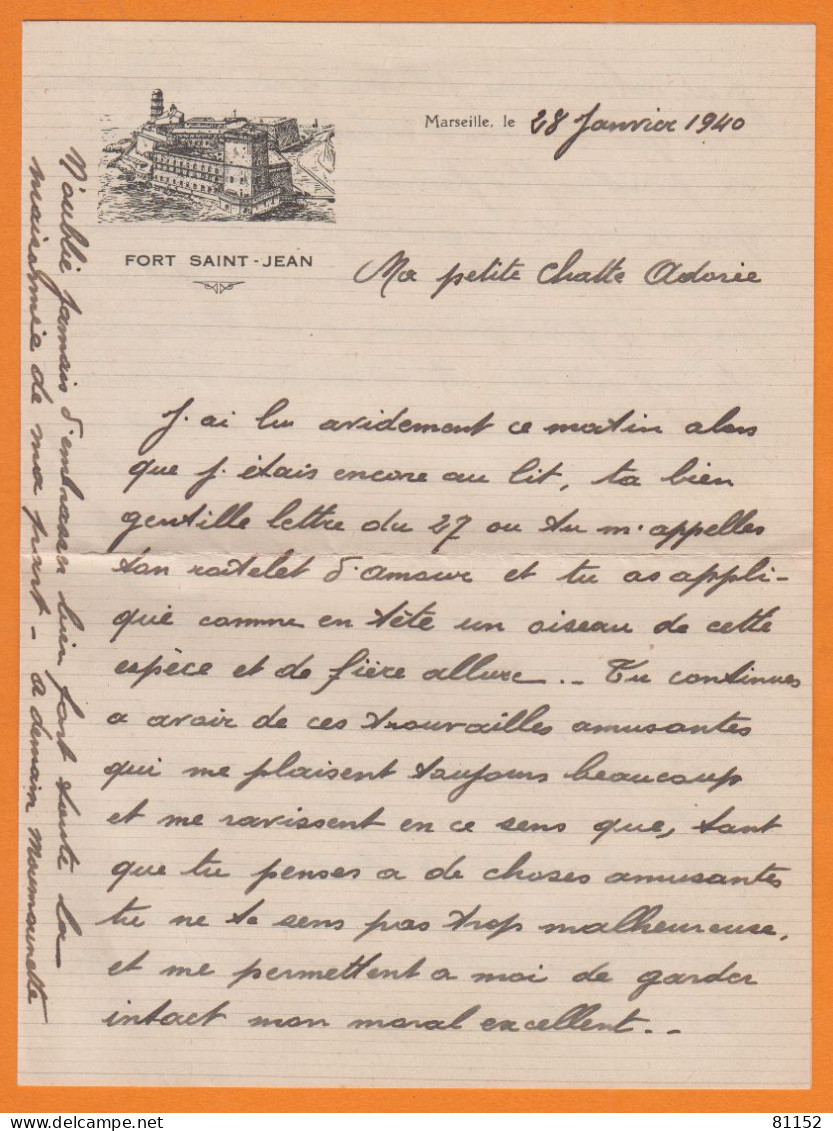 Marseille, le 28 Janvier 1940
FORT SAINT-JEAN
Ma petite Chatte Adorée
J'ai lu avidement ce matin alors
que j'étais encore au lit, ta bien
gentille lettre du 27 ou tu m'appelles
ton roitelet d'amour et tu as appli-
qué comme en tête un oiseau de cette
espèce et de fière allure.. Tu continues
a avoir de ces trouvailles amusantes
qui me plaisent toujours beaucoup
et me ravissent en ce sens que, tant
que tu penses a de choses amusantes
tu ne te sens pas trop malheureuse,
et me permettent a moi de garder
intact mon moral excellent..
N'oublie jamais d'embrasser bien fort toute la
maisonnée de ma part - a demain Moumounette
delcampe.net
81152